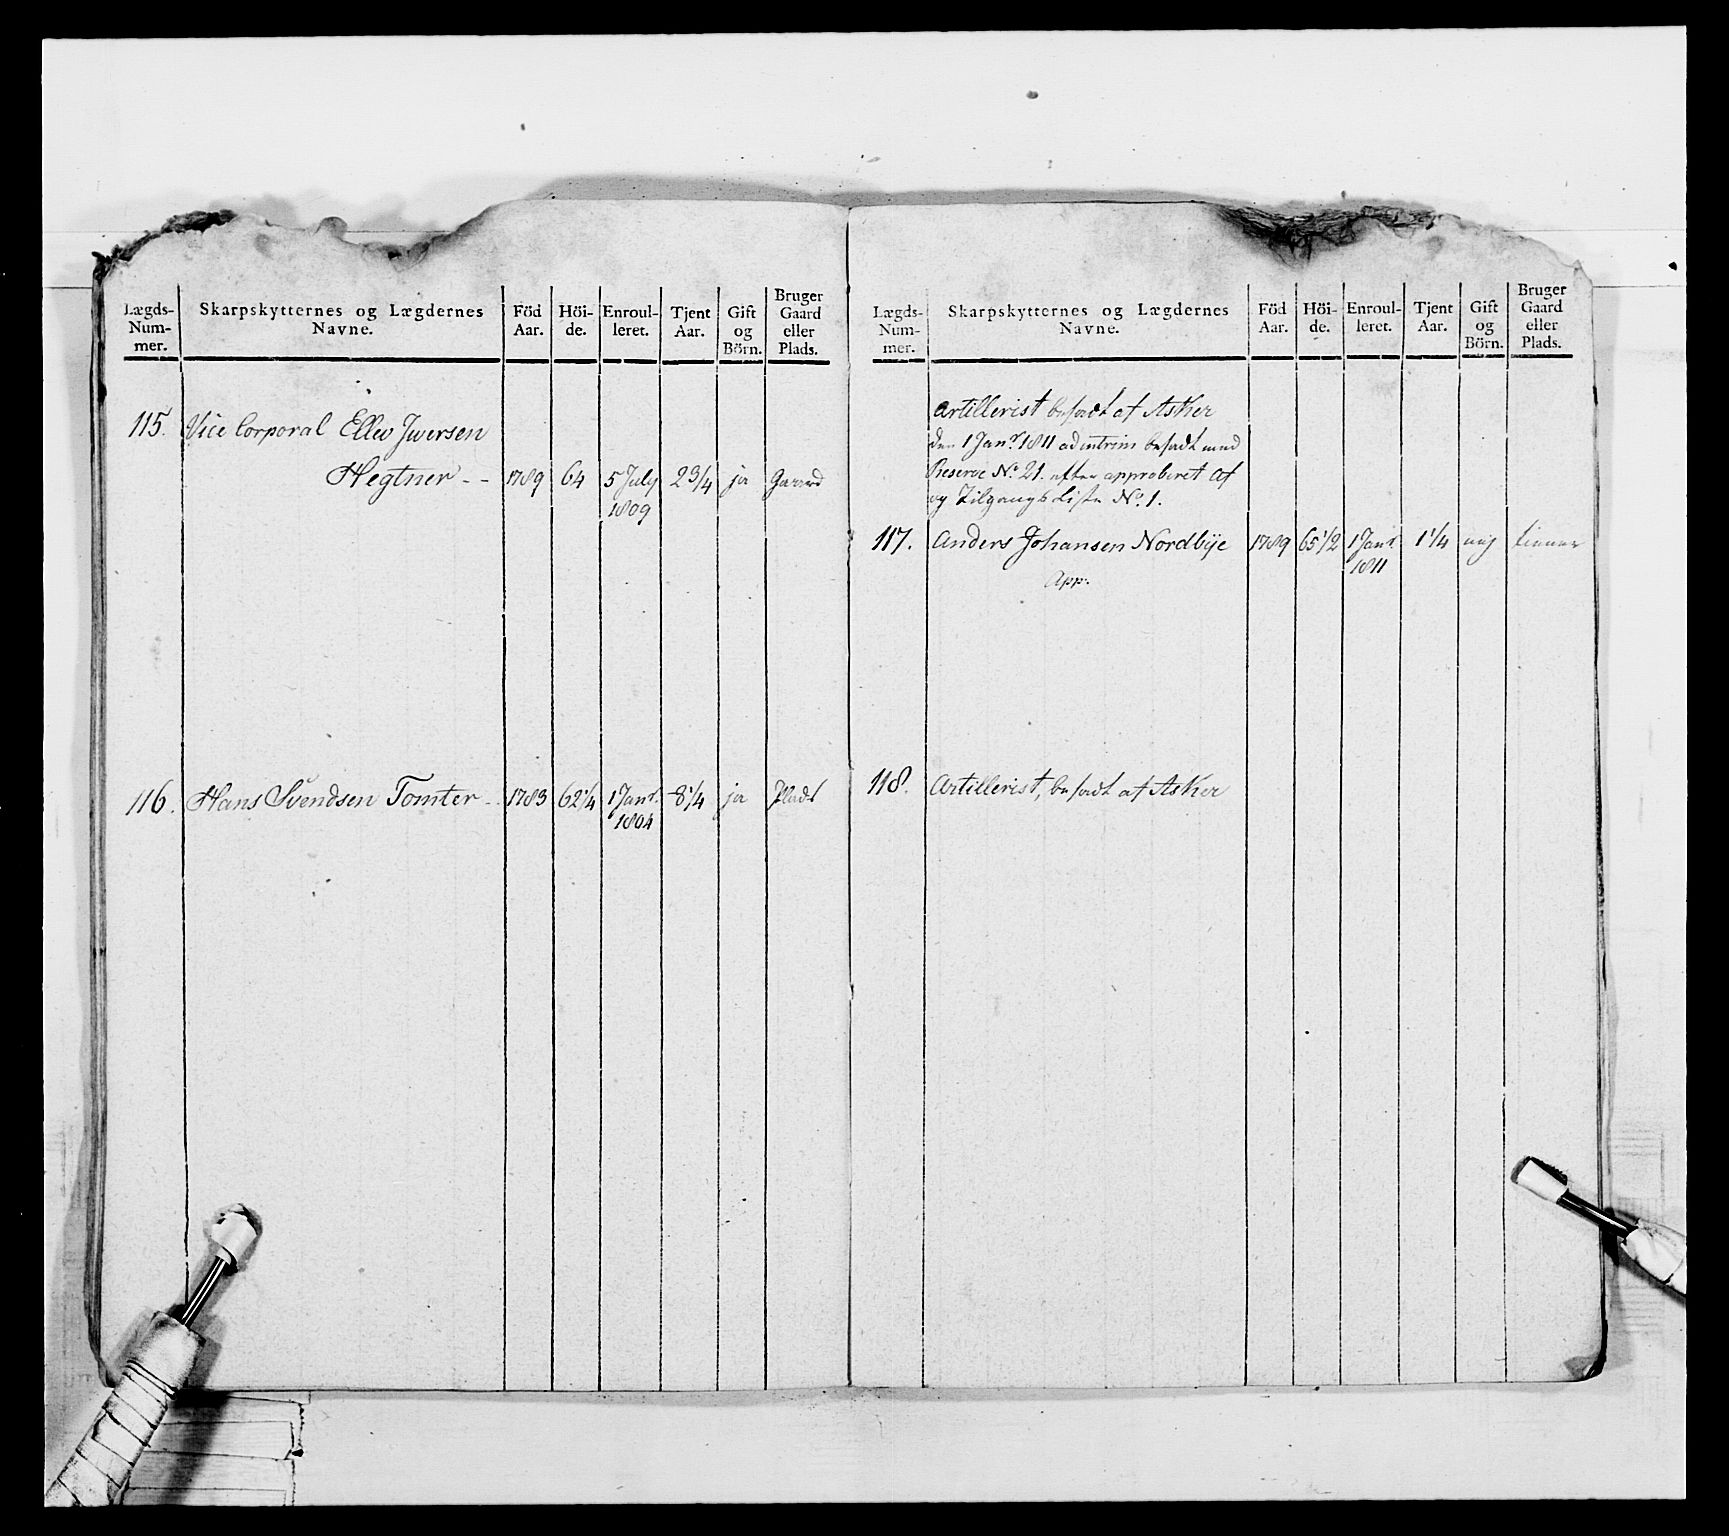 Lægds-Num-mer. Skarpskytternes og Lægdernes Navne. Föd Aar. Höi-de. Enroul-leret. Tjent Aar. Gift og Börn. Bruger Gaard eller Plads.
115. Vice Corporal Ellev Iwersen
Hegtner - - 1789 64 5 July 1809 2 3/4 ja Gaard
116. Hans Svendsen Tomter - 1783 62 1/4 1 Janr. 1804 8 1/4 ja Plads
Lægds-Num-mer. Skarpskytternes og Lægdernes Navne. Föd Aar. Höi-de. Enroul-leret. Tjent Aar. Gift og Börn. Bruger Gaard eller Plads.
Artillerist besadt af Asker
den 1 Janr. 1811 ad intrim besadt med
Reserve No. 21. efter approberet Af
og Tilgangs Liste No. 1.
117. Anders Johansen Nordbye 1789 65 1/2 1 Janr. 1811 1 1/4 nej tiener
App:
118. Artillerist, besadt af Asker